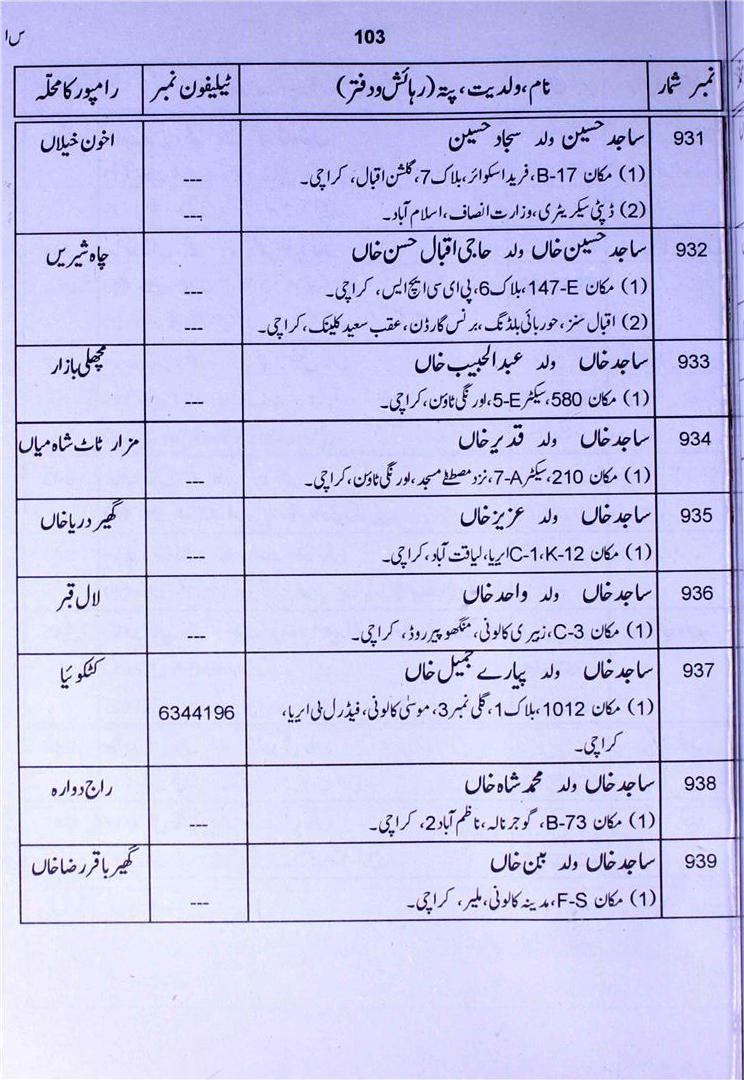 103
س ا
نمبر شمار	نام، ولدیت، پتہ (رہائش و دفتر)	ٹیلیفون نمبر	رامپور کا محلّہ
931	ساجد حسین ولد سجاد حسین	اخون خیلاں
(1) مکان B-17، فرید اسکوائر، بلاک 7، گلشن اقبال، کراچی۔	---
(2) ڈپٹی سیکریٹری، وزارت انصاف، اسلام آباد۔	---
932	ساجد حسین خاں ولد حاجی اقبال حسن خاں	چاہ شیریں
(1) مکان 147-E، بلاک 6، پی ای سی ایچ ایس، کراچی۔	---
(2) اقبال سنز، حور بائی بلڈنگ، برنس گارڈن، عقب سعید کلینک، کراچی۔	---
933	ساجد خاں ولد عبد الحبیب خاں	مچھلی بازار
(1) مکان 580، سیکٹر 5-E، اورنگی ٹاؤن، کراچی۔	---
934	ساجد خاں ولد قدیر خاں	مزار ٹاٹ شاہ میاں
(1) مکان 210، سیکٹر 7-A، نزد مصطفےٰ مسجد، اورنگی ٹاؤن، کراچی۔	---
935	ساجد خاں ولد عزیز خاں	گھیر دریا خاں
(1) مکان C-1، K-12 ایریا، لیاقت آباد، کراچی۔	---
936	ساجد خاں ولد واحد خاں	لال قبر
(1) مکان C-3، زبیری کالونی، منگھوپیر روڈ، کراچی۔	---
937	ساجد خاں ولد پیارے جمیل خاں	کٹکوئیا
(1) مکان 1012، بلاک 1، گلی نمبر 3، موسیٰ کالونی، فیڈرل بی ایریا،	6344196
کراچی۔
938	ساجد خاں ولد محمد شاہ خاں	راج دوارہ
(1) مکان B-73، گوجر نالہ، ناظم آباد 2، کراچی۔	---
939	ساجد خاں ولد ببن خاں	گھیر باقر رضا خاں
(1) مکان F-S، مدینہ کالونی، ملیر، کراچی۔	---